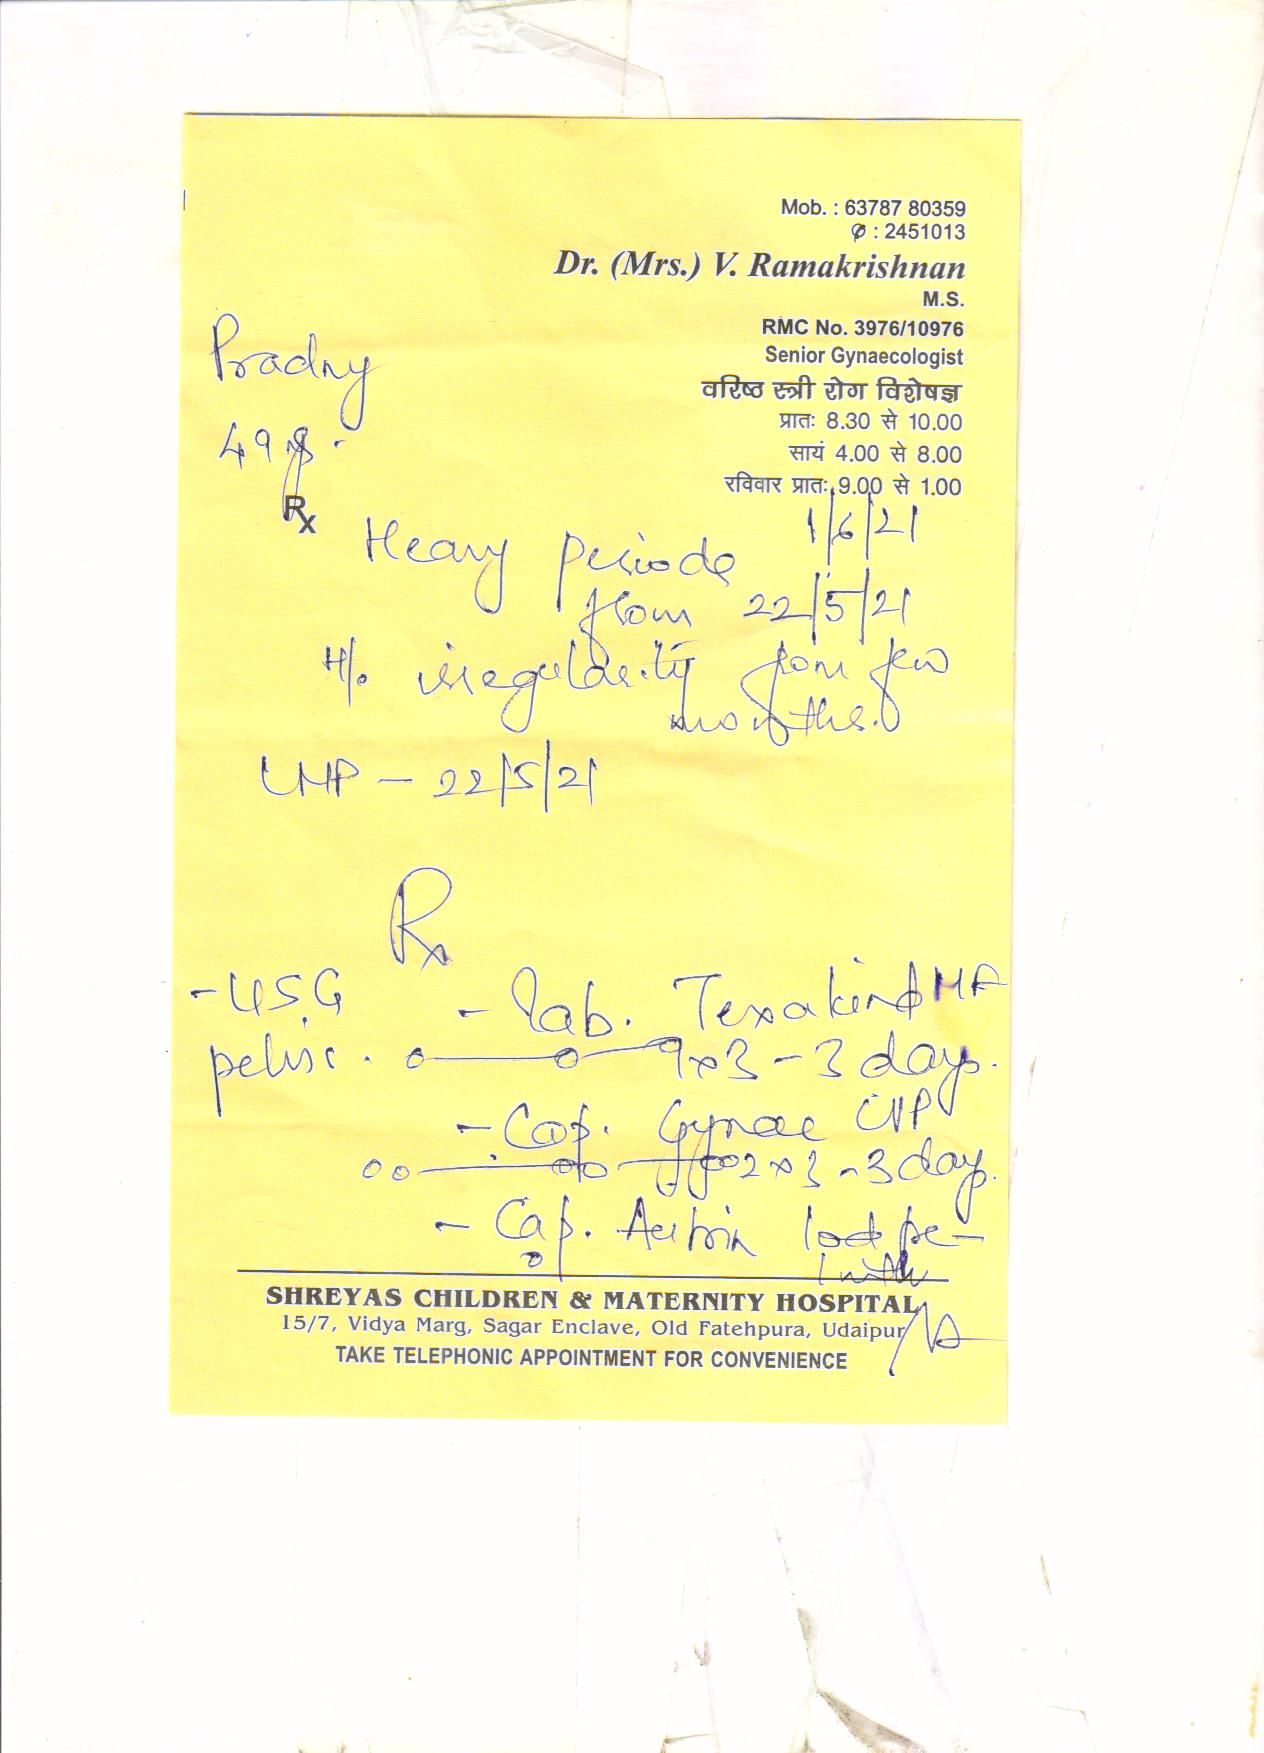 Mob. : 63787 80359
✆ : 2451013
Dr. (Mrs.) V. Ramakrishnan
M.S.
RMC No. 3976/10976
Senior Gynaecologist
वरिष्ठ स्त्री रोग विशेषज्ञ
प्रातः 8.30 से 10.00
सायं 4.00 से 8.00
रविवार प्रातः 9.00 से 1.00
Pradny
49 y.
Rx
1/6/21
Heavy periods
from 22/5/21
H/o irregularity from few
months.
LMP - 22/5/21
Rx
- USG
pelvis.
- Tab. Texakind MF
1x3 - 3 days.
- Cap. Gynae CVP
2x3 - 3 day.
- Cap.
SHREYAS CHILDREN & MATERNITY HOSPITAL
15/7, Vidya Marg, Sagar Enclave, Old Fatehpura, Udaipur
TAKE TELEPHONIC APPOINTMENT FOR CONVENIENCE